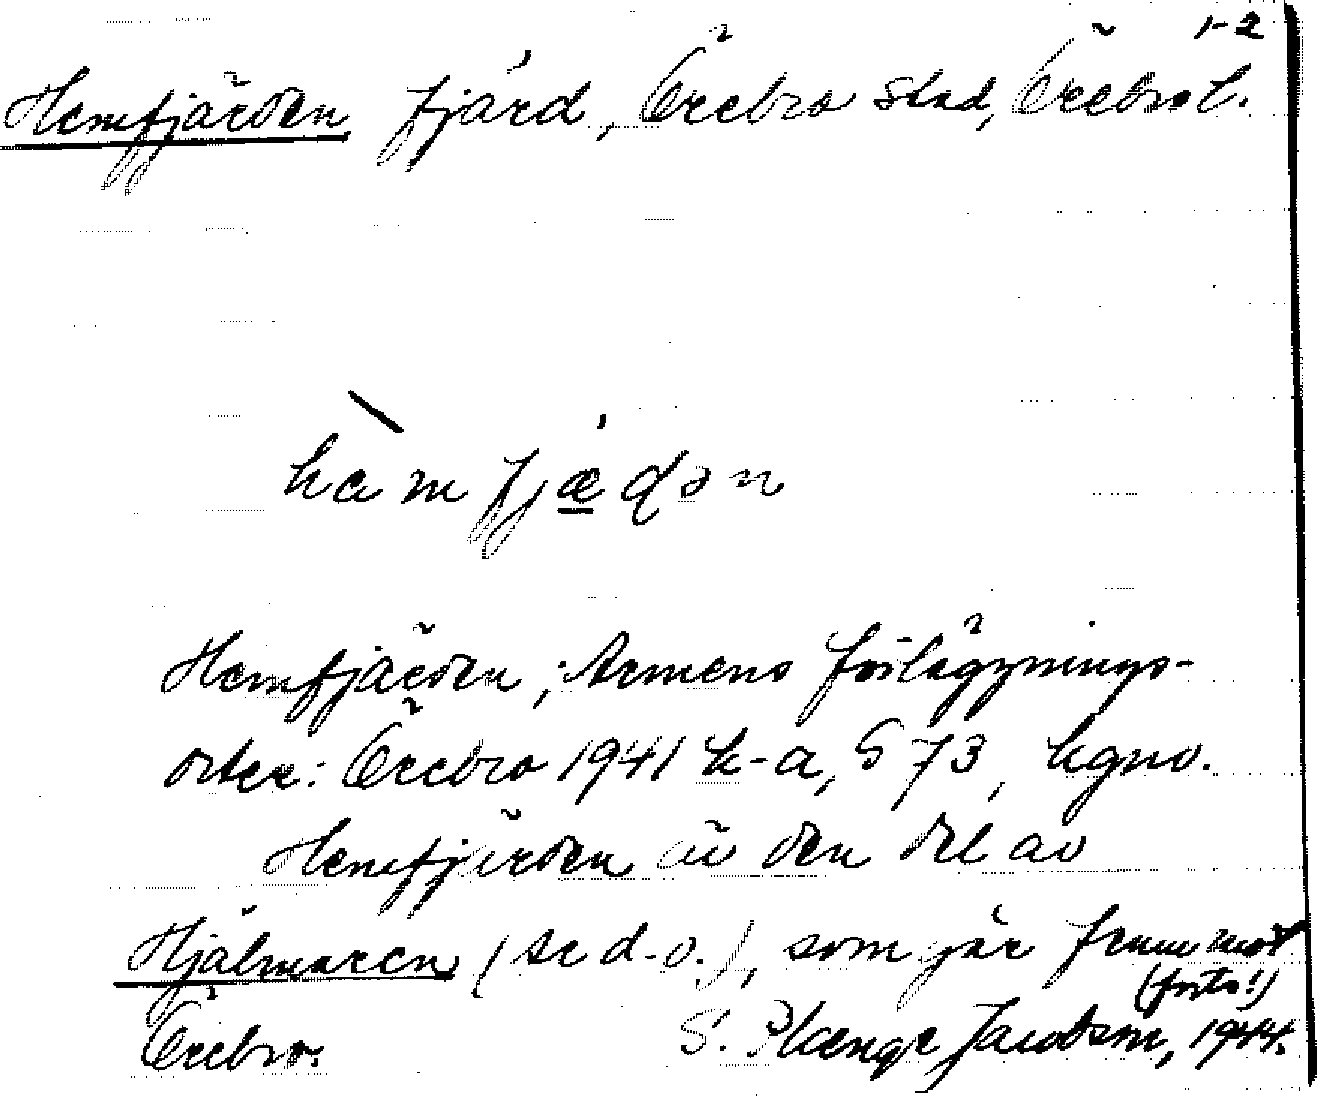 1-2
Hemfjärden fjärd, Örebro stad, Örebro l.
hæmfjædən
Hemfjärden, Armens förläggnings-
orter: Örebro 1941 k-a, S 73, hgno.
Hemfjärden är den del av
Hjälmaren (se d.o.), som går fram mot
(foto!)
Örebro. S. Jacobson, 1944.